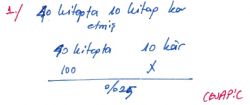 1-/ 40 kitapta 10 kitap kar
etmiş
40 kitapta 10 kâr
100 X
%25
CEVAP: C